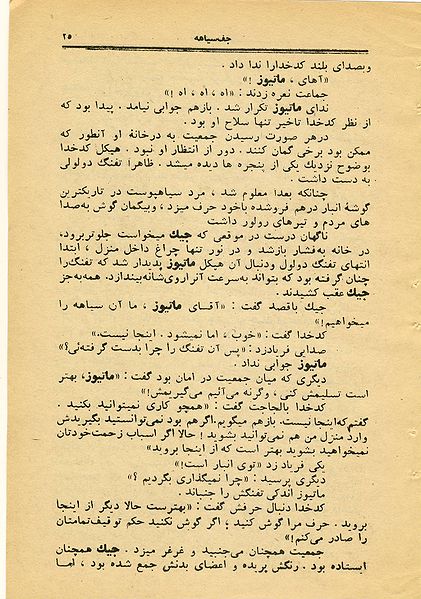 جف‌سیاهه
۲۵
وبصدای بلند کدخدارا ندا داد .
«آهای ، ماتیوز !»
جماعت نعره زدند : «اه ، اه ، اه !»
ندای ماتیوز تکرار شد . بازهم جوابی نیامد . پیدا بود که
از نظر کدخدا تاخیر تنها سلاح او بود .
درهر صورت رسیدن جمعیت به درخانهٔ او آنطور که
ممکن بود برخی گمان کنند . دور از انتظار او نبود . هیکل کدخدا
بوضوح نزدیك یکی از پنجره ها دیده میشد . ظاهراً تفنگ دولولی
به دست داشت .
چنانکه بعداً معلوم شد ، مرد سیاهپوست در تاریکترین
گوشهٔ انبار درهم فروشده باخود حرف میزد ، وبیگمان گوش به‌صدا
های مردم و تیرهای رولور داشت
ناگهان درست در موقعی که جیك میخواست جلوتربرود،
در خانه به‌فشار بازشد و در نور تنها چراغ داخل منزل ، ابتدا
انتهای تفنگ دولول ودنبال آن هیکل ماتیوز پدیدار شد که تفنگ‌را
چنان گرفته بود که بتواند به‌سرعت آنراروی‌شانه‌بیندازد. همه‌به‌جز
جیك عقب کشیدند .
جیك باقصد گفت : «آقـای ماتیوز ، ما آن سیاهه را
میخواهیم!»
کدخدا گفت : «خوب ، اما نمیشود . اینجا نیست.»
صدایی فریادزد : «پس آن تفنگ را چرا بدست گرفته‌ئی؟»
ماتیوز جوابی نداد .
دیگری که میان جمعیت در امان بود گفت : «ماتیوز، بهتر
است تسلیمش کنی ، وگرنه می‌آئیم می‌گیریمش!»
کدخدا بالجاجت گفت : «همچو کاری نمیتوانید بکنید .
گفتم‌که‌اینجانیست. بازهم میگویم.اگرهم بود نمی‌توانستید بگیریدش
وارد منزل من هم نمی‌توانید بشوید ! حالا اگر اسباب زحمت‌خودتان
نمیخواهید بشوید بهتر است که از اینجا بروید»
یکی فریاد زد «توی انبار است!»
دیگری پرسید : «چرا نمیگذاری بگردیم ؟»
ماتیوز اندکی تفنگش را جنباند .
کدخدا دنبال حرفش گفت : «بهترست حالا دیگر از اینجا
بروید . حرف مرا گوش کنید ؛ اگر گوش نکنید حکم توقیف‌تمامتان
را صادر می‌کنم!»
جمعیت همچنان می‌جنبید و غرغر میزد . جیك همچنان
ایستاده بود . رنگش پریده و اعضای بدنش جمع شده بود ، اما